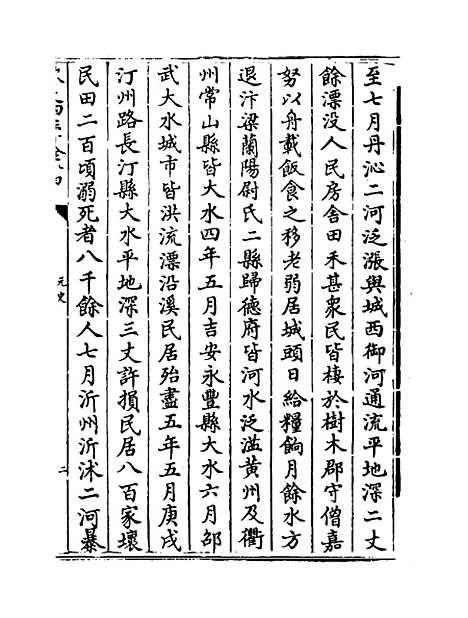 至七月丹沁二河泛漲與城西御河通流平地深二丈
餘漂没人民房舍田禾甚衆民皆棲於樹木郡守僧嘉
努以舟載飯食之移老弱居城頭日給糧餉月餘水方
退汴梁蘭陽尉氏二縣歸德府皆河水泛滥黄州及衢
州常山縣皆大水四年五月吉安永豐縣大水六月邵
武大水城市皆洪流漂沿溪民居殆盡五年五月庚戌
汀州路長汀縣大水平地深三丈許損民居八百家壞
民田二百頃溺死者八千餘人七月沂州沂沭二河暴
元史
二